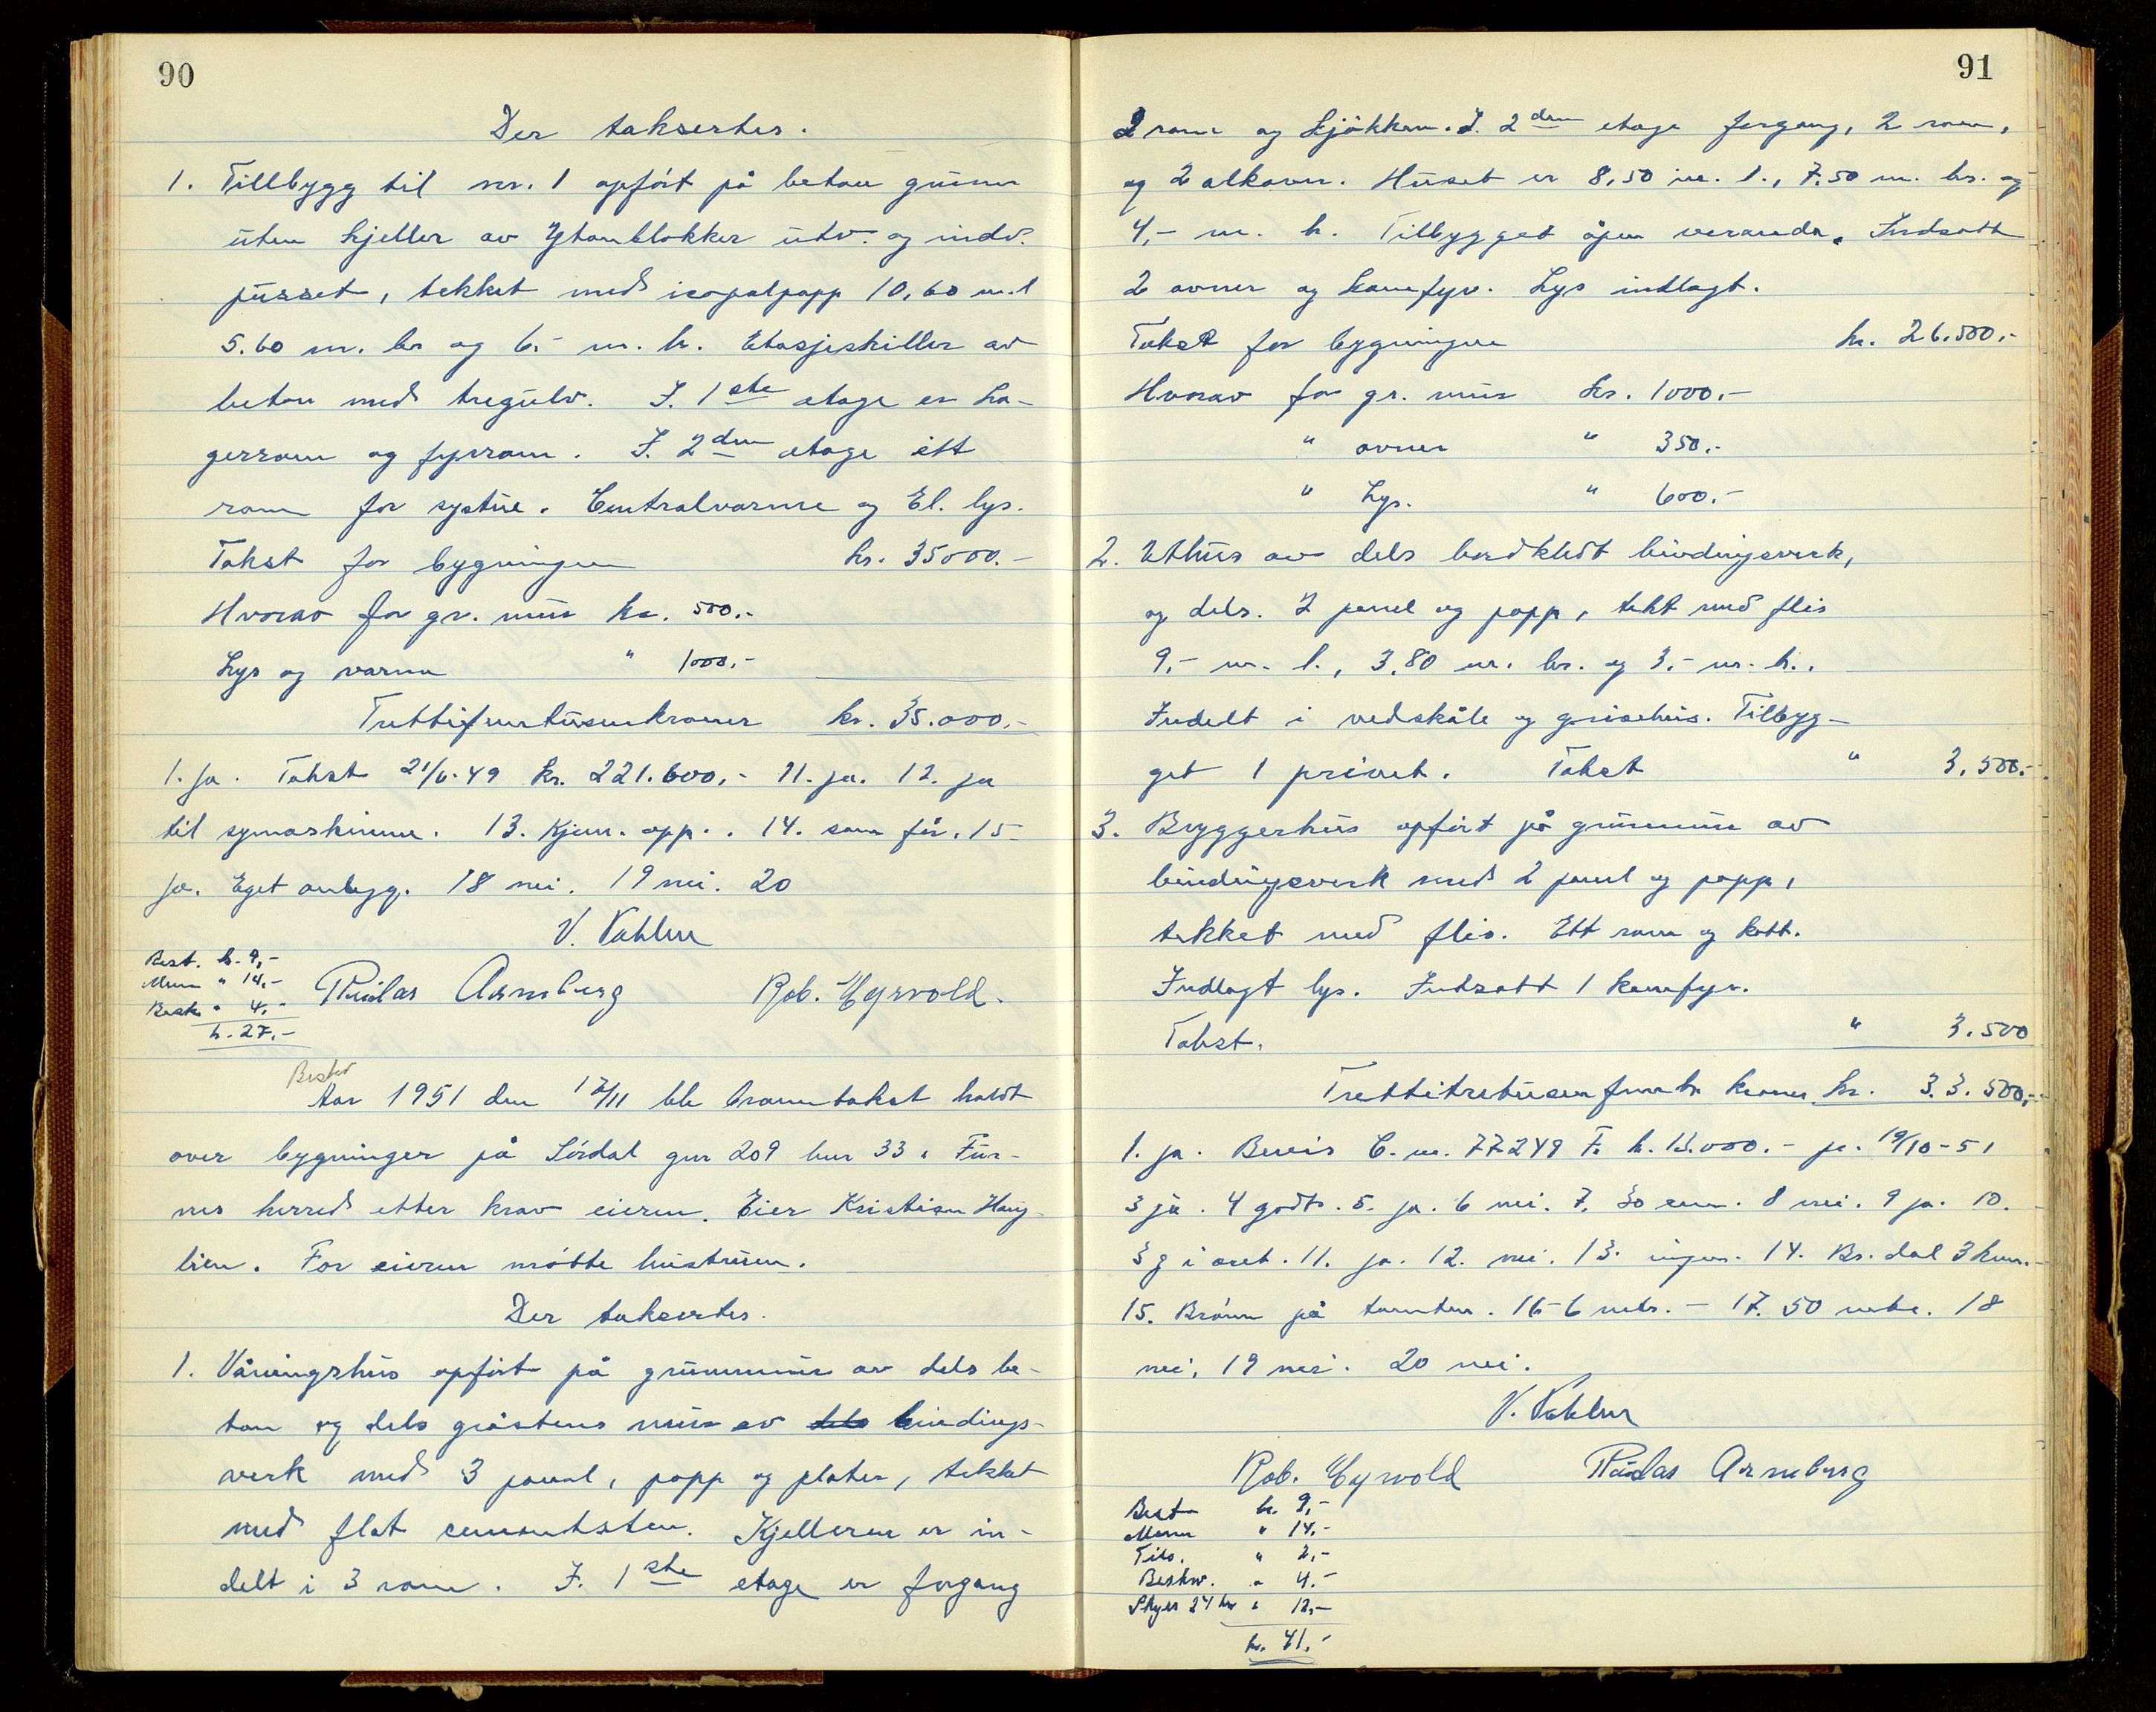 90
Der takserter.
1. Tillbygg til nr. 1 opført på beton grunn
uten kjeller av Ytonblokker utv. og indv.
pusset, tekket med icopalpapp 10,60 m. l
5.60 m. br og 6.- m. h. Etasjeskiller av
beton med tregulv. I. 1ste etage er la-
gerrom og fyrrom. I. 2den etage ett
rom for systue. Centralvarme og El. lys.
Takst for bygningen kr. 35000.-
Hvorav for gr. mur kr. 500.-
Lys og varme " 1000.-
Trettifemtusenkroner kr. 35.000.-
1. ja. Takst 21/6-49 kr. 221.600,- 11. ja. 12. ja
til symaskinene. 13. Kjem. app. . 14. som før. 15
ja. Eget anlegg. 18 nei. 19 nei. 20
V. Vahlen
Best. kr. 9,-
Menn " 14,-
Beskr " 4,-
k. 27,-
Thidar Arneberg Rob. Hyrvold.
Beskr
Aar 1951 den 12/11 ble branntakst holdt
over bygninger på Lørdal gnr 209 bnr 33 i Fur-
nes herred etter krav eieren. Eier Kristian Haug-
lien. For eieren møtte hustruen.
Der takserter.
1. Våningshus opført på grunnmur av dels be-
ton og dels gråstens mur av dels bindings-
verk med 3 panel, papp og plater, tekket
med flat cementsten. Kjelleren er in-
delt i 3 rom. I. 1ste etage er forgang
91
2 rom og kjøkken. I. 2den etage forgang, 2 rom,
og 2 alkover. Huset er 8,50 m. l., 7.50 m. br. og
4,- m. h. Tilbygget åpen veranda. Indsatt
2 ovner og komfyr. Lys indlagt.
Takst for bygningen kr. 26.500.-
Hvorav for gr. mur kr. 1000.-
" ovner " 350.-
" Lys. " 600.-
2. Uthus av dels bordkledt bindingsverk,
og dels. 2 panel og papp, tekt med flis
9,- m. l., 3,80 m. br. og 3,- m. h.,
Indelt i vedskåle og grisehus. Tilbyg-
get 1 privet. Takst " 3.500.-
3. Bryggerhus opført på grunnmur av
bindingsverk med 2 panel og papp,
tekket med flis. Ett rom og kott.
Indlagt lys. Indsatt 1 komfyr.
Takst. " 3.500
Trettitretusenfemh. kroner kr. 33.500,-
1. ja. Bevis C. nr. 77249 F. k. 13.000.- pr. 19/10-51
3 ja. 4 godt. 5. ja. 6 nei. 7. 30 cm. 8 nei. 9 ja. 10.
3 g i året. 11. ja. 12. nei. 13. ingen. 14. Br. dal 3 km.
15. Brønn på tomten. 16- 6 metr. - 17. 50 metr. 18
nei, 19 nei. 20 nei.
V. Vahlen
Rob. Hyrvold Thidar Arneberg
Best kr. 9,-
Menn " 14.-
Tils. " 2,-
Beskr. " 4.-
Skyss 24 km " 12,-
kr. 41.-